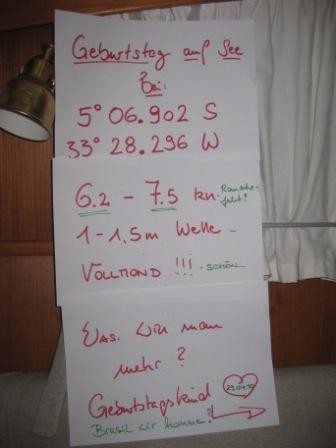 Geburtstag auf See
Bei:
5° 06.902 S
33° 28.296 W
6.2 – 7.5 kn. Rausche-
fahrt!
1-1,5m Welle -
VOLLMOND !!! - SCHÖN
WAS. will man
mehr?
Geburtstagskind
Brasil wir kommen!